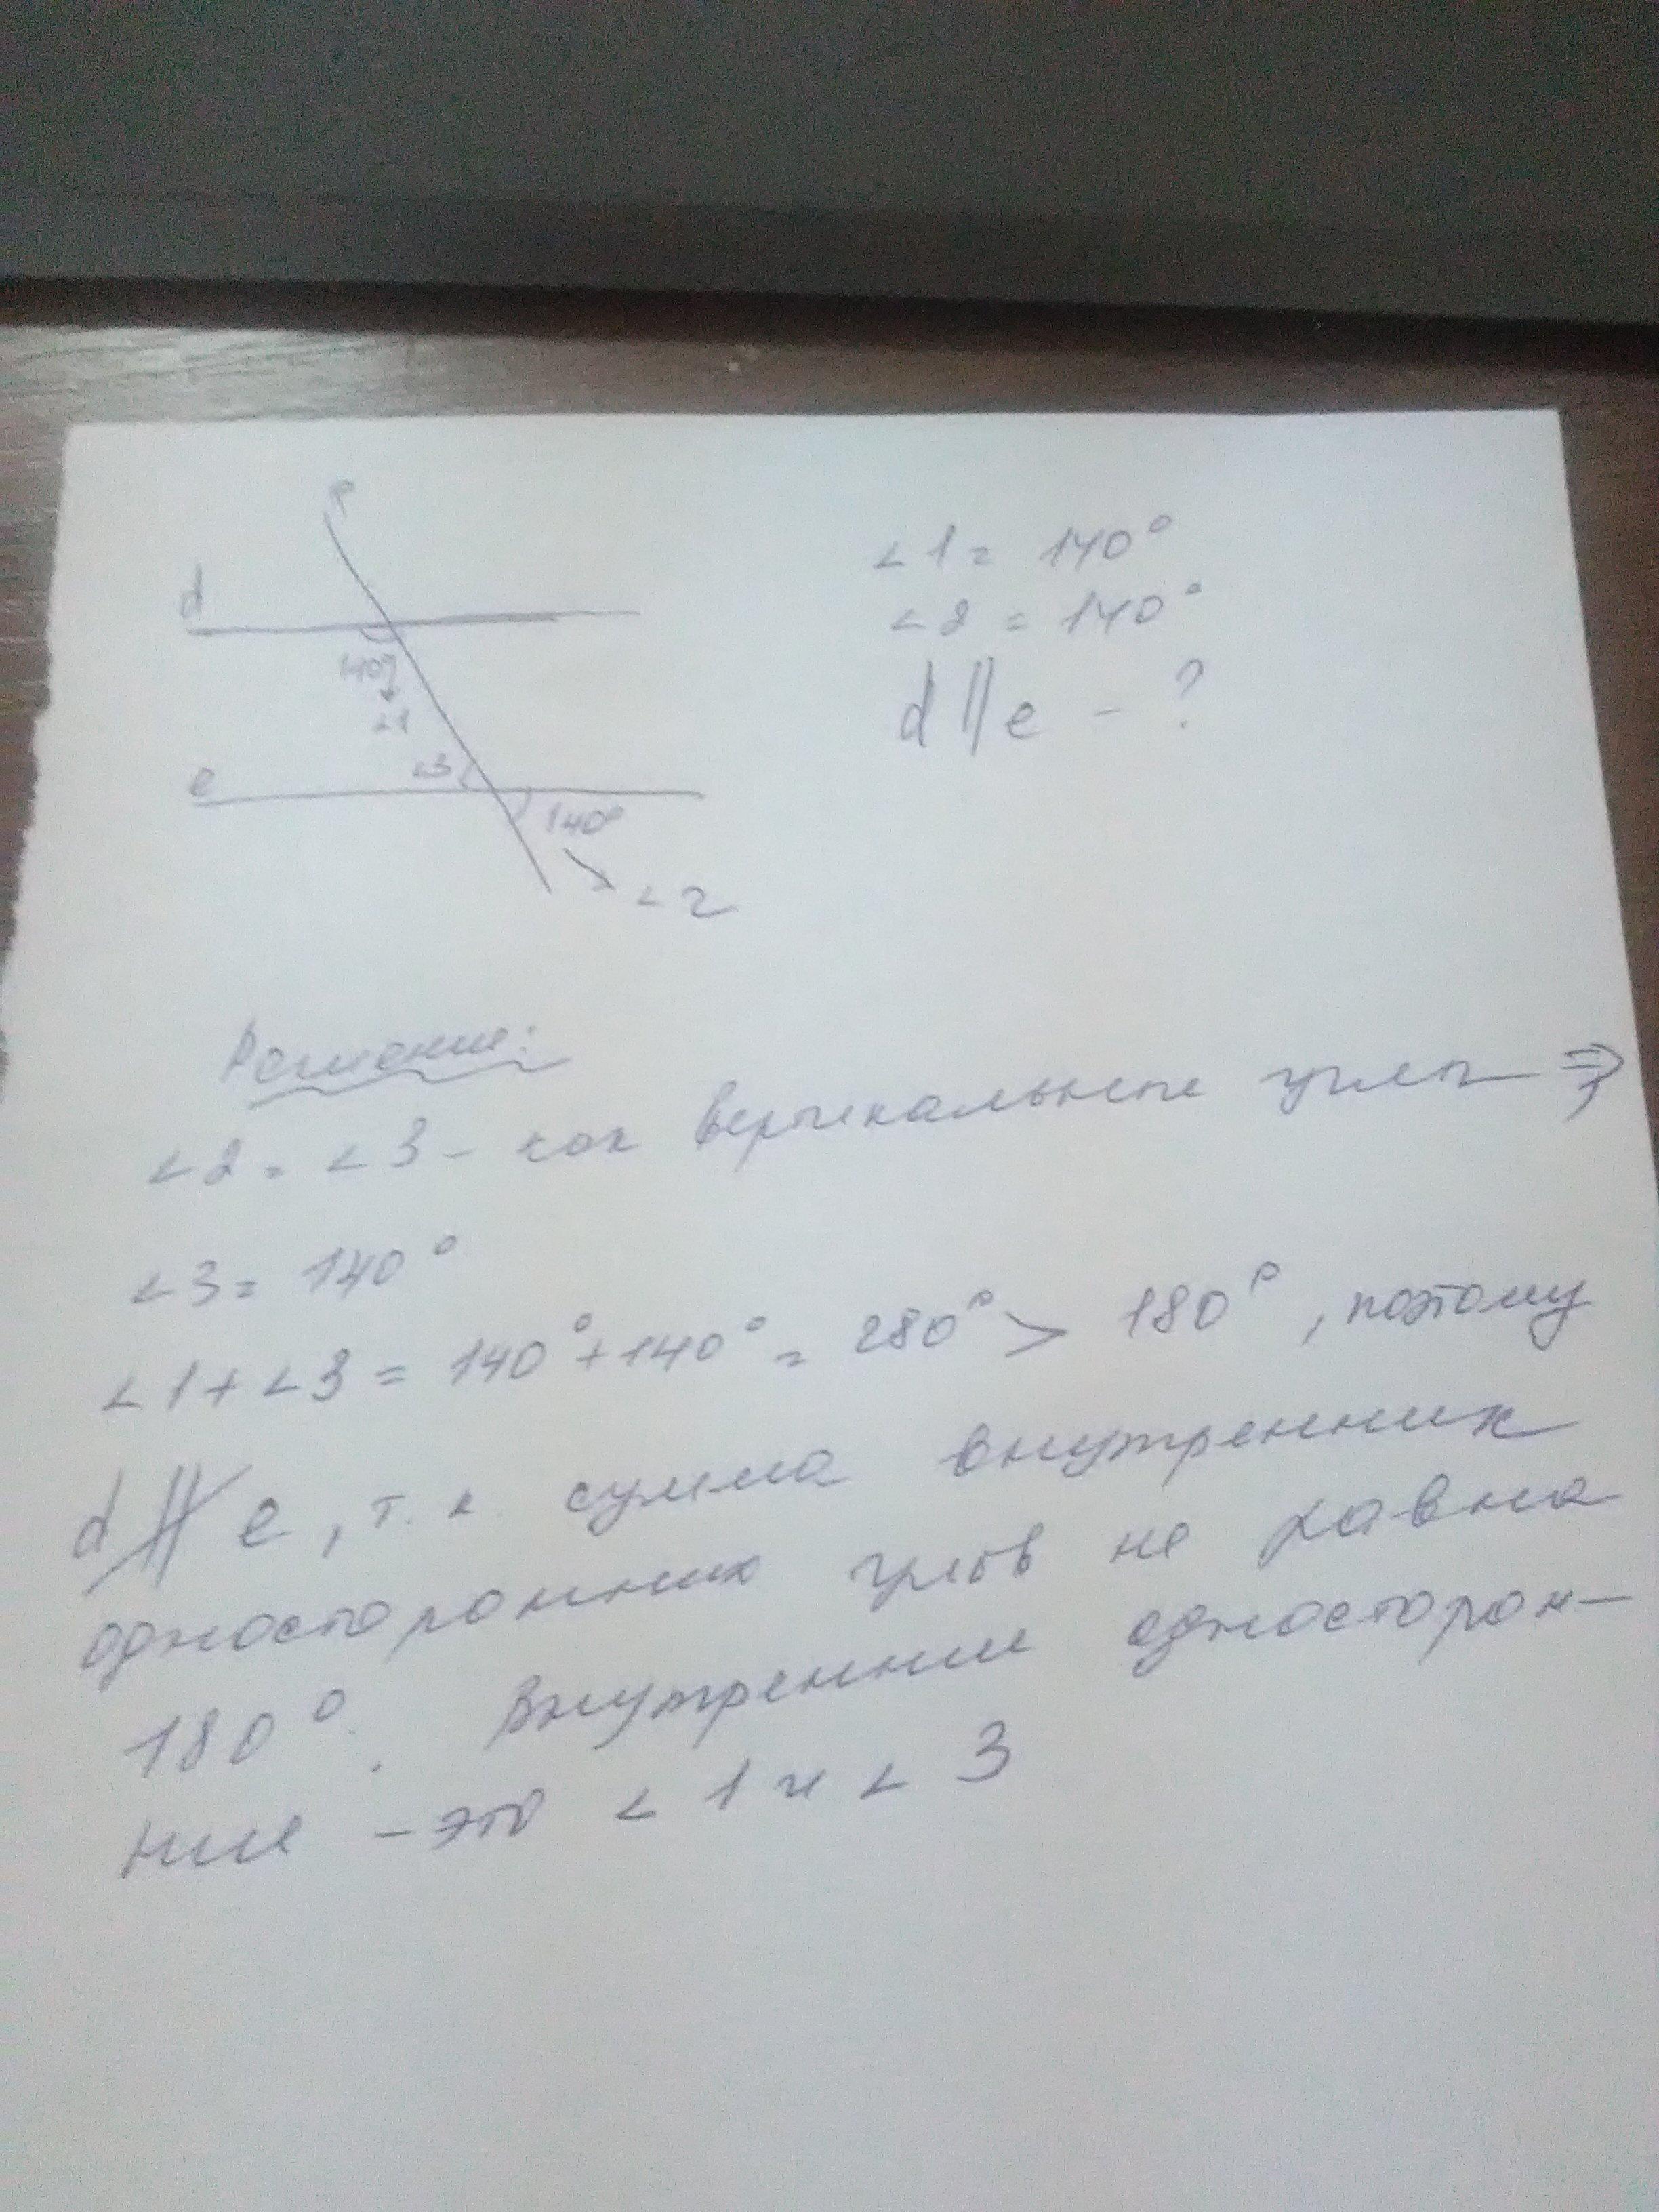 P
d
140°
∠1
∠3
e
140°
∠2
∠1 = 140°
∠2 = 140°
d || e - ?
Решение:
∠2 = ∠3 - как вертикальные углы ⇒
∠3 = 140°
∠1 + ∠3 = 140° + 140° = 280° > 180°, поэтому
d ∦ e, т.к. сумма внутренних
односторонних углов не равна
180°. Внутренние односторон-
ние - это ∠1 и ∠3